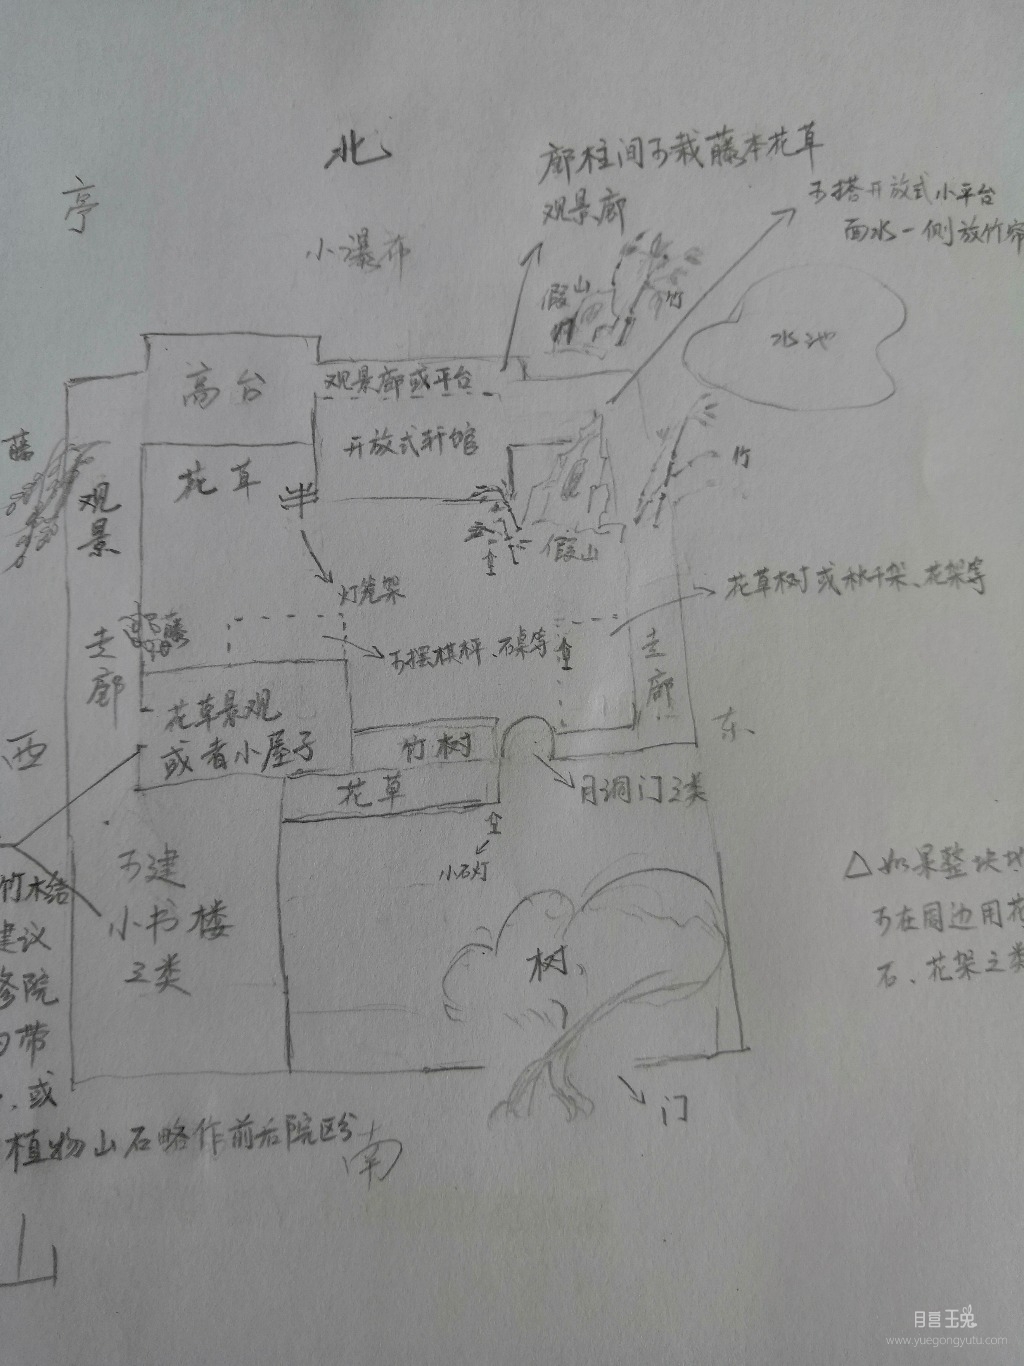 北
亭
小瀑布
廊柱间可栽藤本花草
观景廊
可搭开放式小平台
面水一侧放竹帘
假山
竹
水池
高台
观景廊或平台
开放式轩馆
藤
花草
观景
竹
假山
灯笼架
花草树或秋千架、花架等
藤
可摆棋枰、石桌等
走廊
走廊
花草景观
或者小屋子
竹树
东
西
花草
月洞门之类
小石灯
可建
小书楼
之类
竹木结
建议
修院
带
、或
植物山石略作前后院区分
树
△如果整块地
可在周边用花
石、花架之类
门
南
山
月宫玉兔
www.yuegongyutu.com